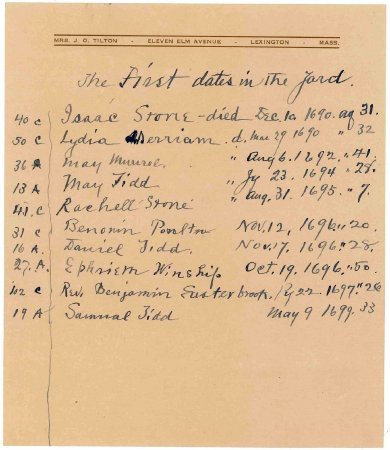 MRS. J. O. TILTON - ELEVEN ELM AVENUE - LEXINGTON - MASS.
The First dates in the Yard.
40 C Isaac Stone - died Dec 10 1690. ag 31.
50 C Lydia Merriam d. Mar 29 1690 " 32
36 A May " Aug 6. 1692. " 41.
13 A May Tidd " Jy 23. 1694 " 28.
41. C Rachell Stone " Aug. 31. 1695. " 7.
31 C Benonin Poulter Nov. 12, 1696. " 20.
16 A. Daniel Tidd. Nov. 17. 1696 " 28.
27. A. Ephriem Winship Oct. 19, 1696. " 50.
102 C Rev. Benjamin Easterbrook. Jy 22 1697. " 26
19 A Samual Tidd May 9 1699. 33